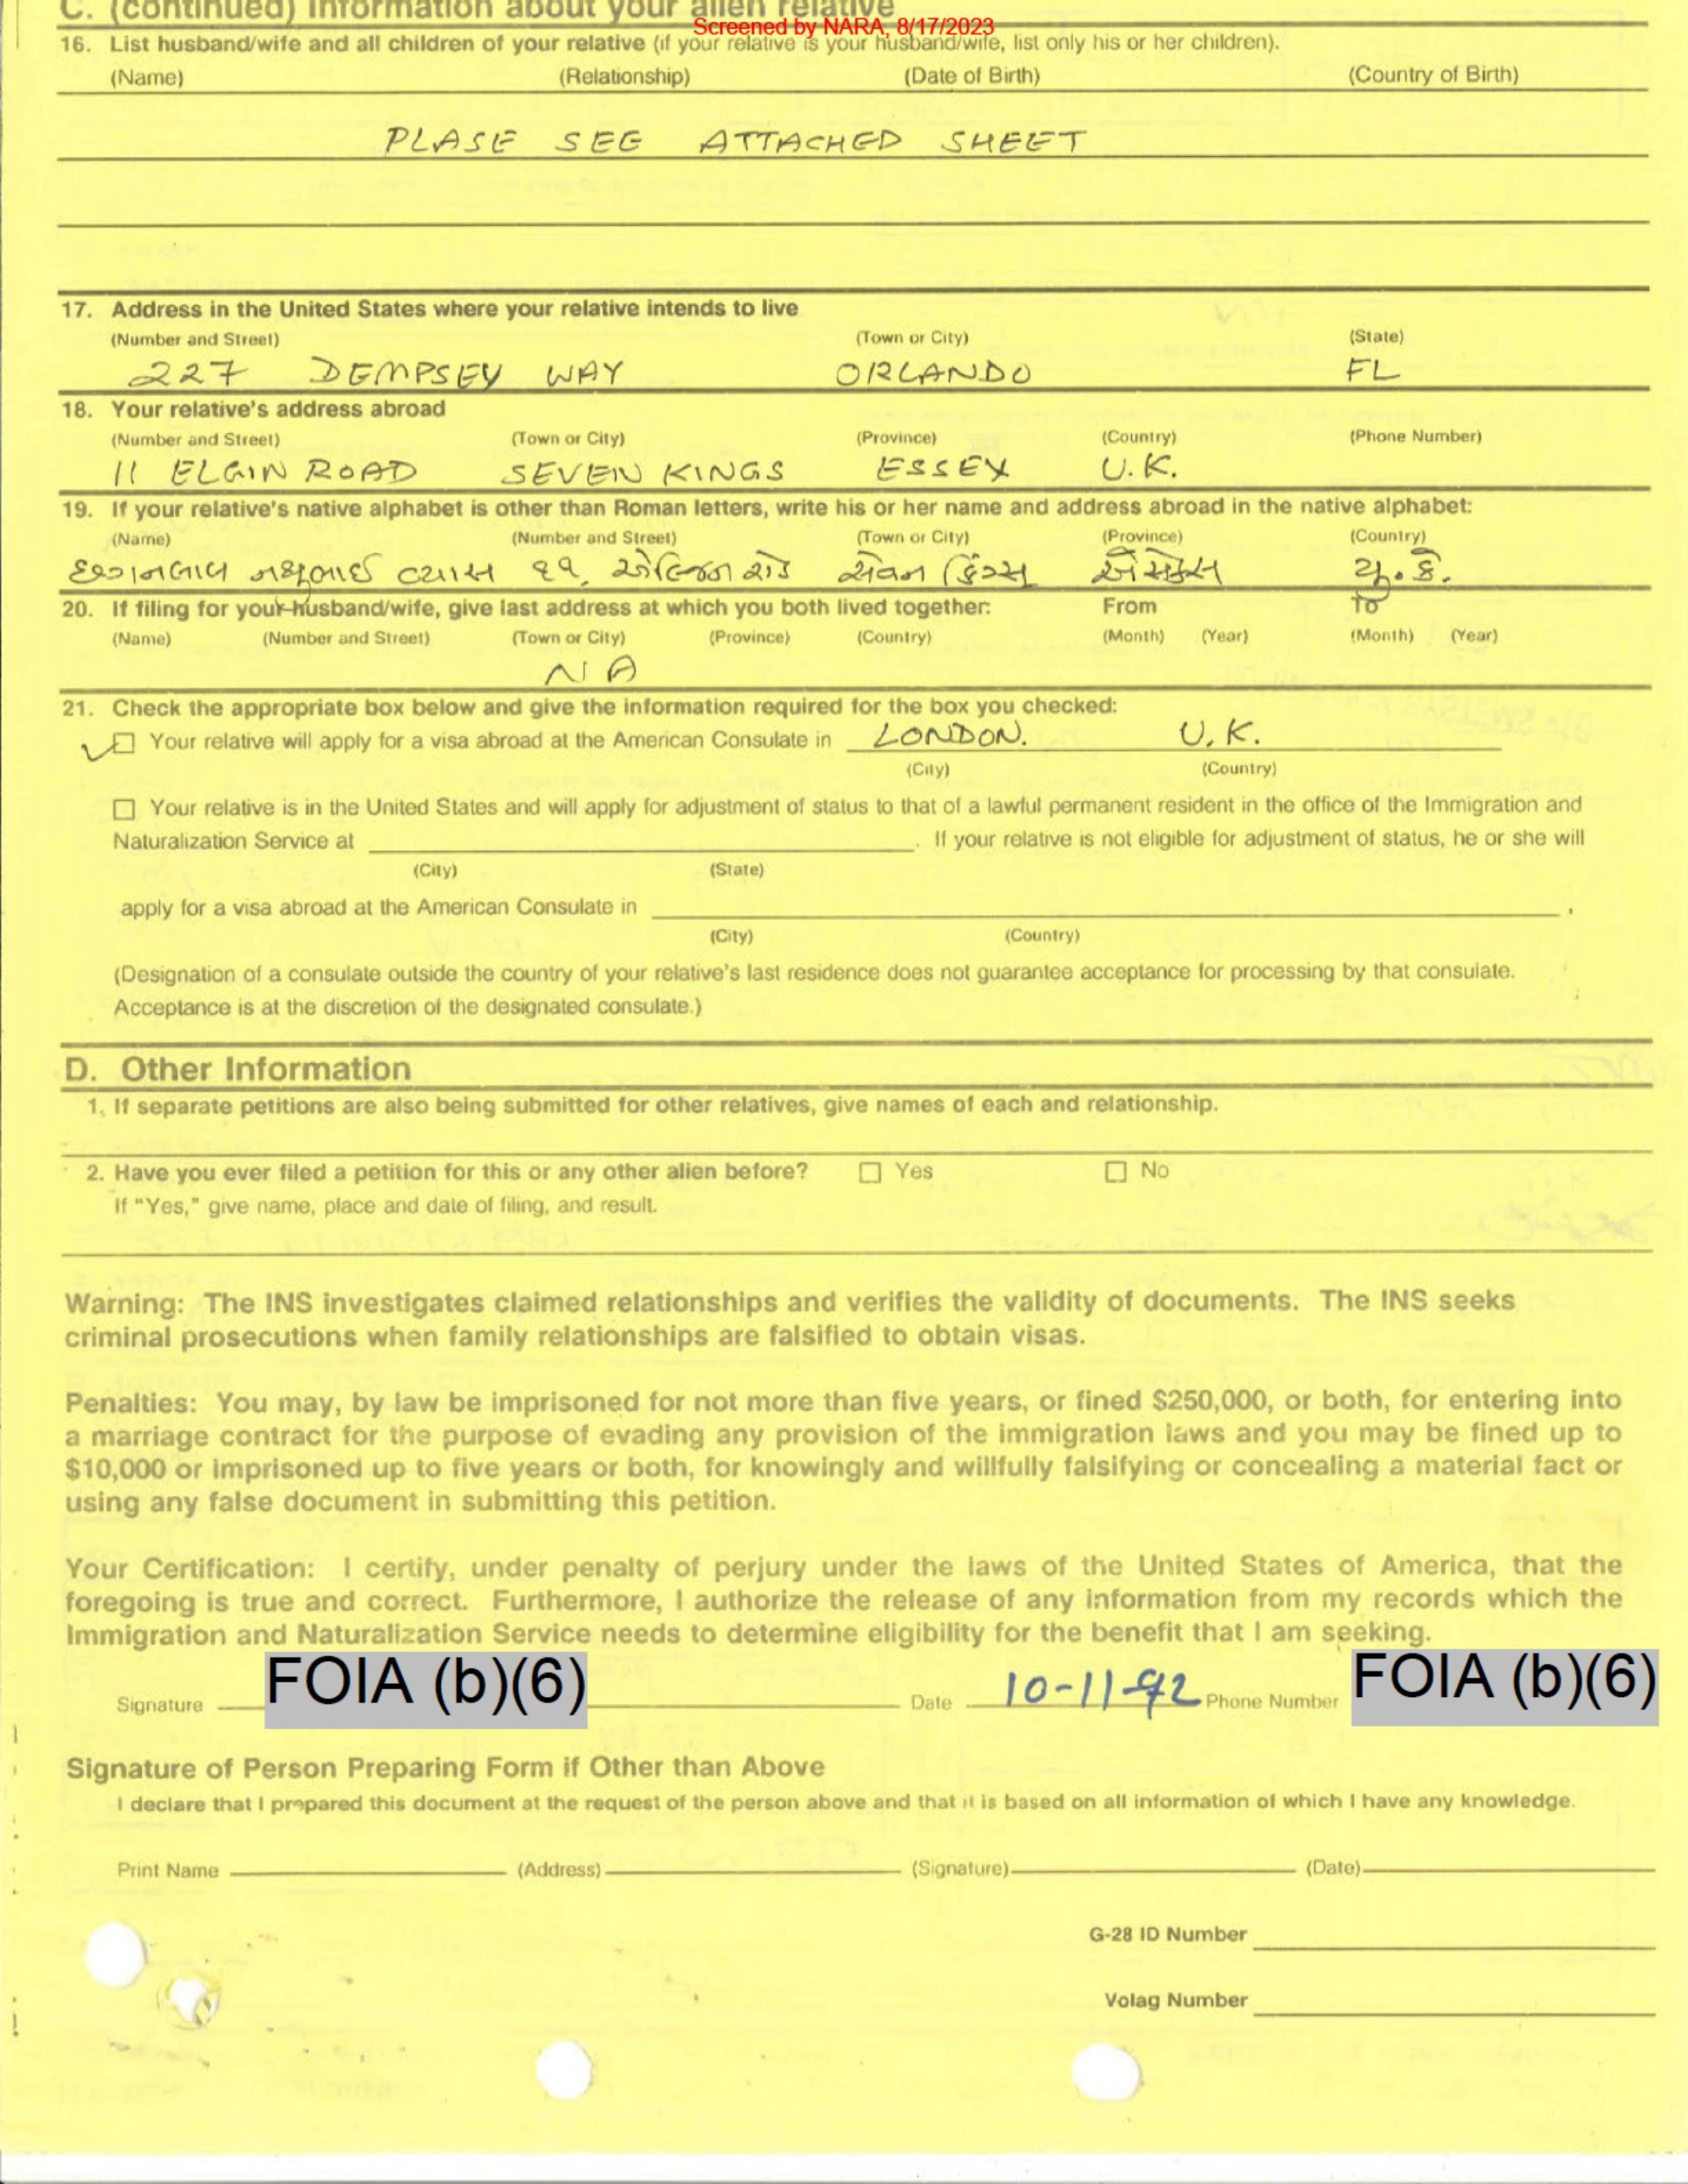 C. (continued) Information about your alien relative
Screened by NARA, 8/17/2023
16. List husband/wife and all children of your relative (if your relative is your husband/wife, list only his or her children).
(Name) (Relationship) (Date of Birth) (Country of Birth)
PLASE SEE ATTACHED SHEET
17. Address in the United States where your relative intends to live
(Number and Street) (Town or City) (State)
227 DEMPSEY WAY ORLANDO FL
18. Your relative's address abroad
(Number and Street) (Town or City) (Province) (Country) (Phone Number)
11 ELGIN ROAD SEVEN KINGS ESSEX U.K.
19. If your relative's native alphabet is other than Roman letters, write his or her name and address abroad in the native alphabet:
(Name) (Number and Street) (Town or City) (Province) (Country)
છગનલાલ વ્યાસ ૧૧, એલ્જિન રોડ સેવન કિંગ્સ એસેક્સ યુ. કે.
20. If filing for your husband/wife, give last address at which you both lived together: From To
(Name) (Number and Street) (Town or City) (Province) (Country) (Month) (Year) (Month) (Year)
NA
21. Check the appropriate box below and give the information required for the box you checked:
Your relative will apply for a visa abroad at the American Consulate in LONDON. U.K.
(City) (Country)
Your relative is in the United States and will apply for adjustment of status to that of a lawful permanent resident in the office of the Immigration and
Naturalization Service at . If your relative is not eligible for adjustment of status, he or she will
(City) (State)
apply for a visa abroad at the American Consulate in .
(City) (Country)
(Designation of a consulate outside the country of your relative's last residence does not guarantee acceptance for processing by that consulate.
Acceptance is at the discretion of the designated consulate.)
D. Other Information
1. If separate petitions are also being submitted for other relatives, give names of each and relationship.
2. Have you ever filed a petition for this or any other alien before? Yes No
If "Yes," give name, place and date of filing, and result.
Warning: The INS investigates claimed relationships and verifies the validity of documents. The INS seeks
criminal prosecutions when family relationships are falsified to obtain visas.
Penalties: You may, by law be imprisoned for not more than five years, or fined $250,000, or both, for entering into
a marriage contract for the purpose of evading any provision of the immigration laws and you may be fined up to
$10,000 or imprisoned up to five years or both, for knowingly and willfully falsifying or concealing a material fact or
using any false document in submitting this petition.
Your Certification: I certify, under penalty of perjury under the laws of the United States of America, that the
foregoing is true and correct. Furthermore, I authorize the release of any information from my records which the
Immigration and Naturalization Service needs to determine eligibility for the benefit that I am seeking.
Signature FOIA (b)(6) Date 10-11-92 Phone Number FOIA (b)(6)
Signature of Person Preparing Form if Other than Above
I declare that I prepared this document at the request of the person above and that it is based on all information of which I have any knowledge.
Print Name (Address) (Signature) (Date)
G-28 ID Number
Volag Number